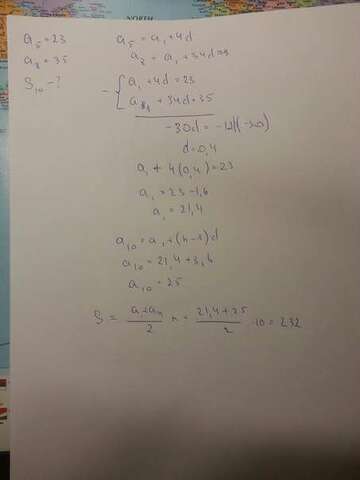 NORTH
a₅ = 23 a₅ = a₁ + 4d
a₈ = 35 a₈ = a₁ + 34d
S₁₀ - ?
- { a₁ + 4d = 23
a₁ + 34d = 35
-30d = -12
d = 0,4
a₁ + 4(0,4) = 23
a₁ = 23 - 1,6
a₁ = 21,4
a₁₀ = a₁ + (n-1)d
a₁₀ = 21,4 + 3,6
a₁₀ = 25
S = (a₁ + aₙ)/2 n = (21,4 + 25)/2 · 10 = 232